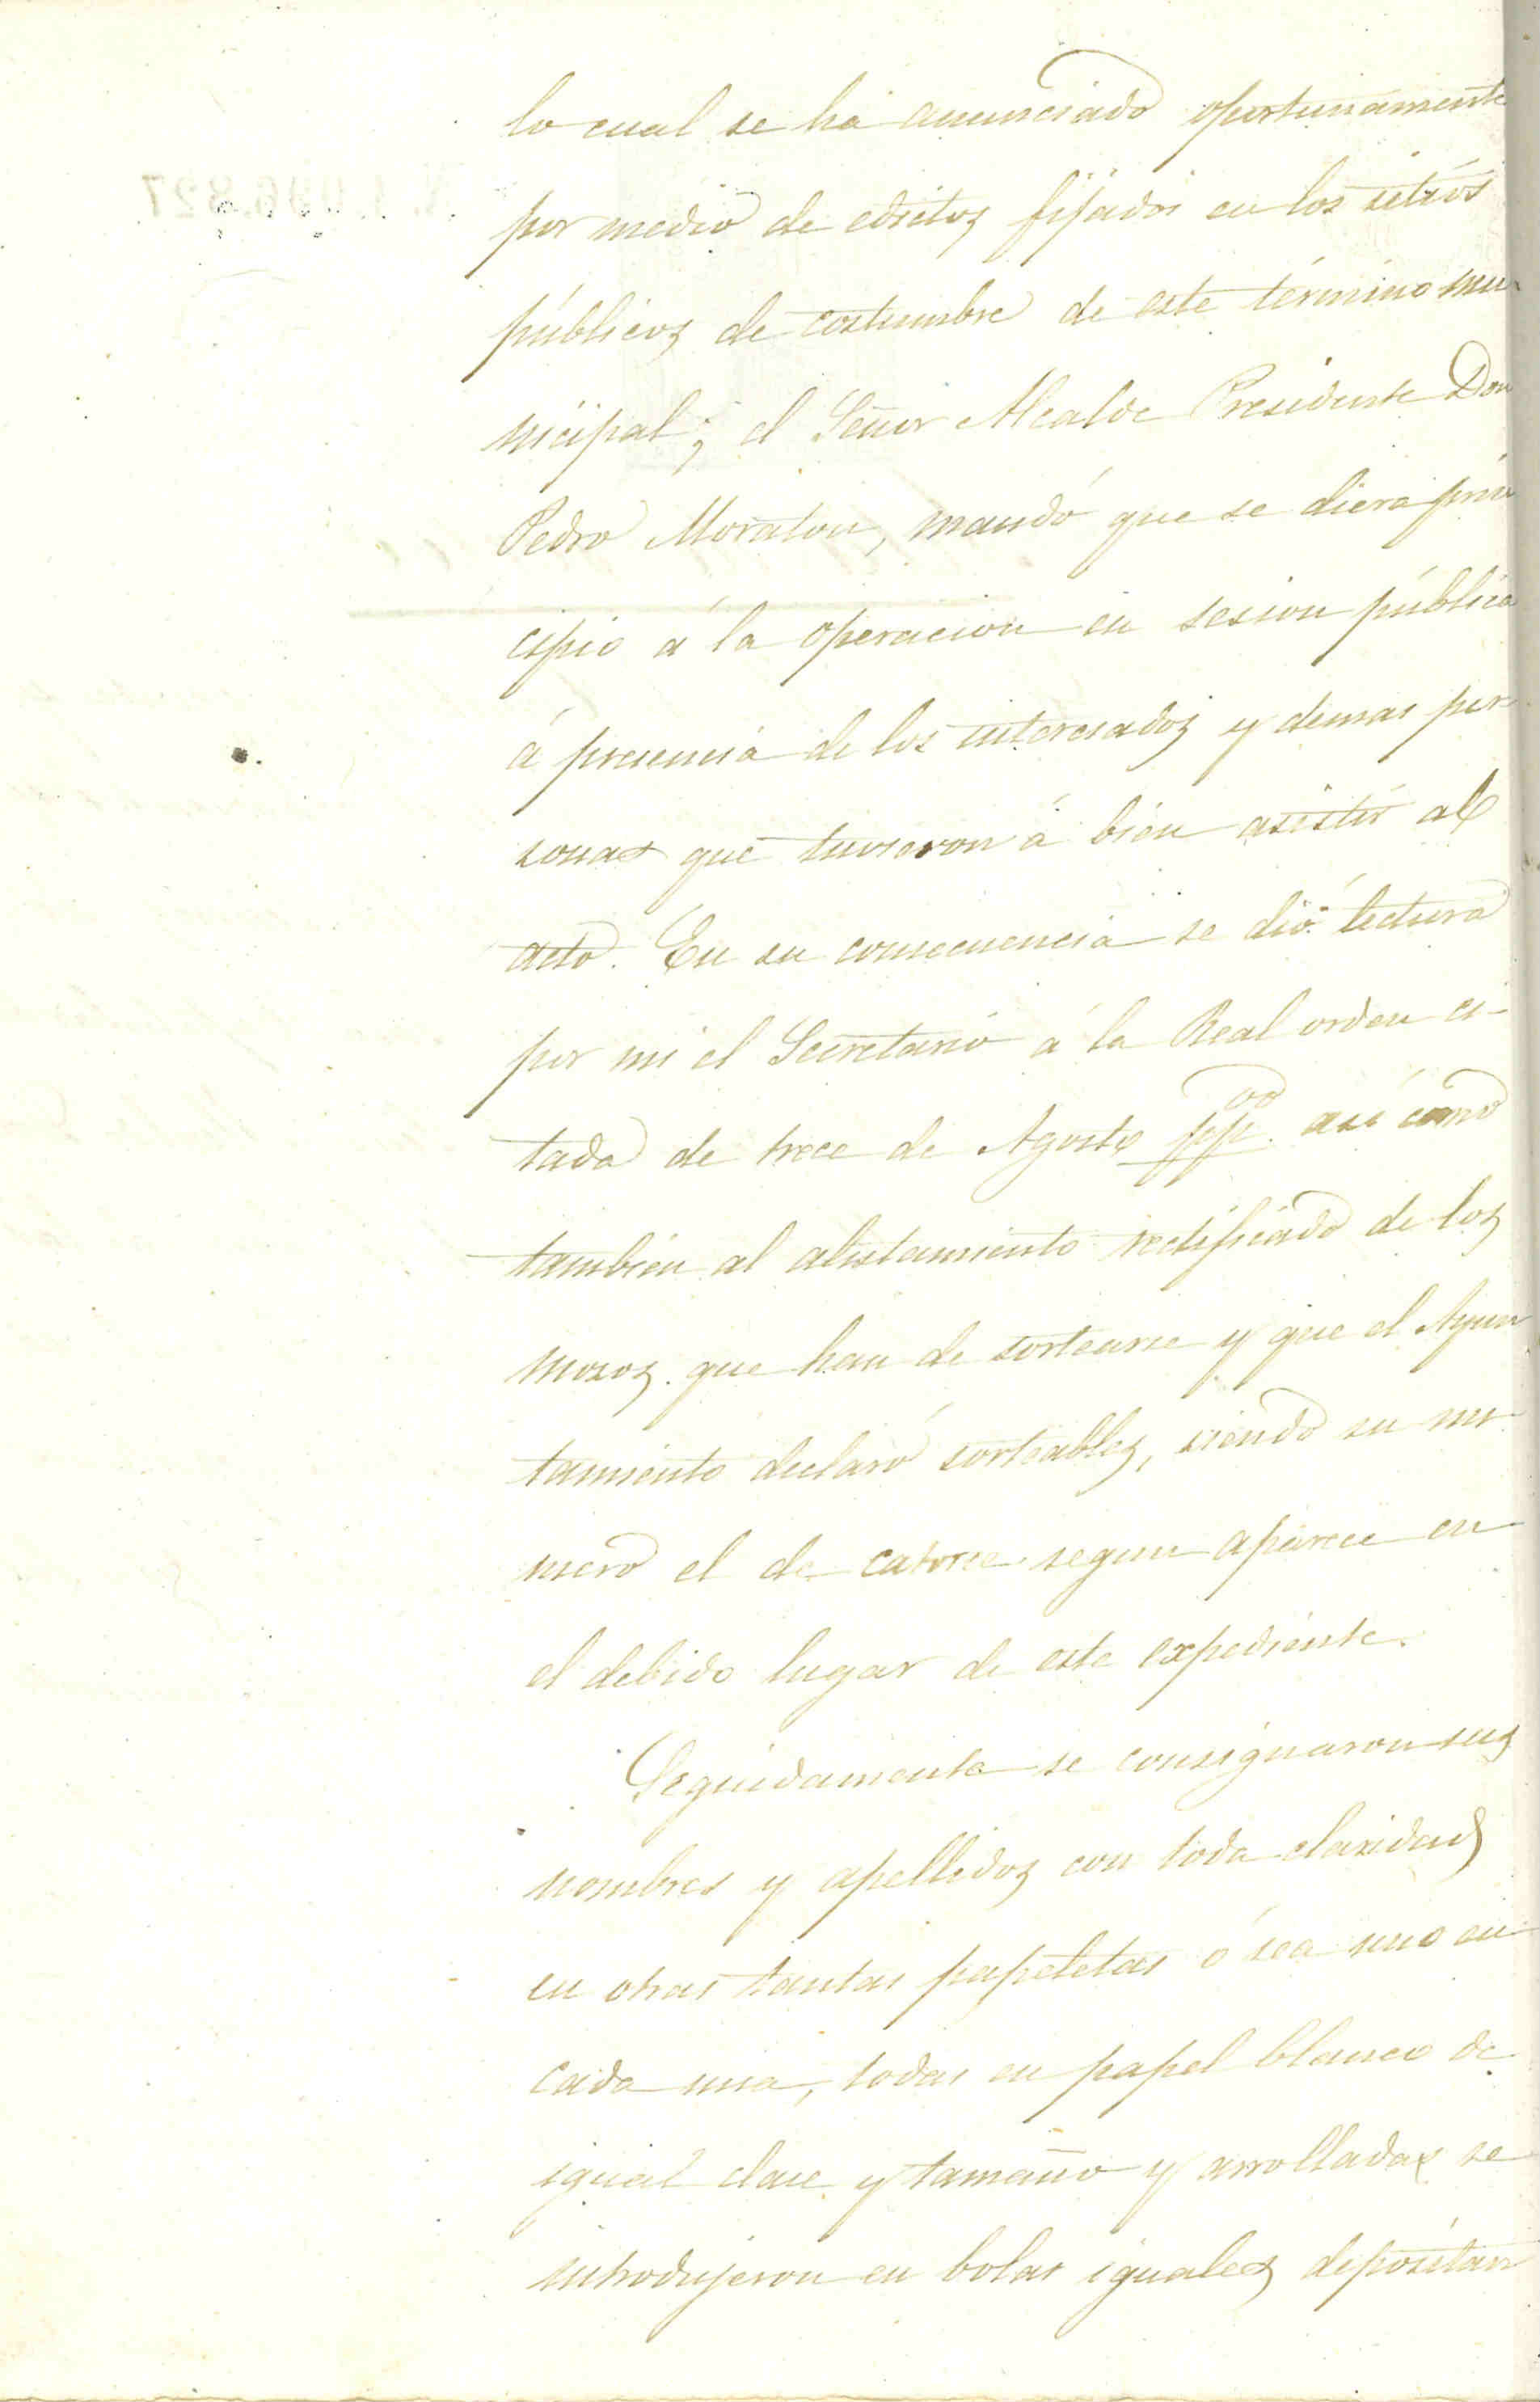 lo cual se há anunciado oportunamente
por medio de edictos fijados en los sitios
públicos de costumbre de este término mu
nicipal; el Señor Alcalde Presidente Don
Pedro Moraton, mandó que se diera prin
cipio á la operacion en sesion pública
á presencia de los interesados y demas per
sonas que tuvieron á bien asistir al
acto. En su consecuencia se dió lectura
por mi el Secretario á la Real orden ci-
tada de trece de Agosto ppdo. así como
tambien al alistamiento rectificado de los
mozos que han de sortearse y que el Ayun
tamiento declaró sorteables, siendo su nu-
mero el de catorce segun aparece en
el debido lugar de este expediente.
Seguidamente se consignaron sus
nombres y apellidos con toda claridad
en otras tantas papeletas ó sea uno en
cada una, todas en papel blanco de
igual clase y tamaño y arrolladas se
introdujeron en bolas iguales depositan